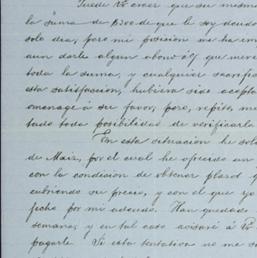 Puede V. creer que su mesma
la suma de $200 de que le soy deudor
solo dia, pero mi posicion no ha em
aun darle algun abono á q que mere
toda la suma, y cualquier sacrific
esta satisfaccion, hubiera sido acepta
menage á su favor, pero, repito, me
tado toda posibilidad de verificarla
En esta situacion he solo
de Maiz, por el cual he ofrecido un
con la condicion de obtener plazo q
cubriendo su precio, y con el que yo
ficho por mi adeudo. Han quedado
semana, y en tal caso avisaré á V.
pagarle. Si esta tentativa no me s